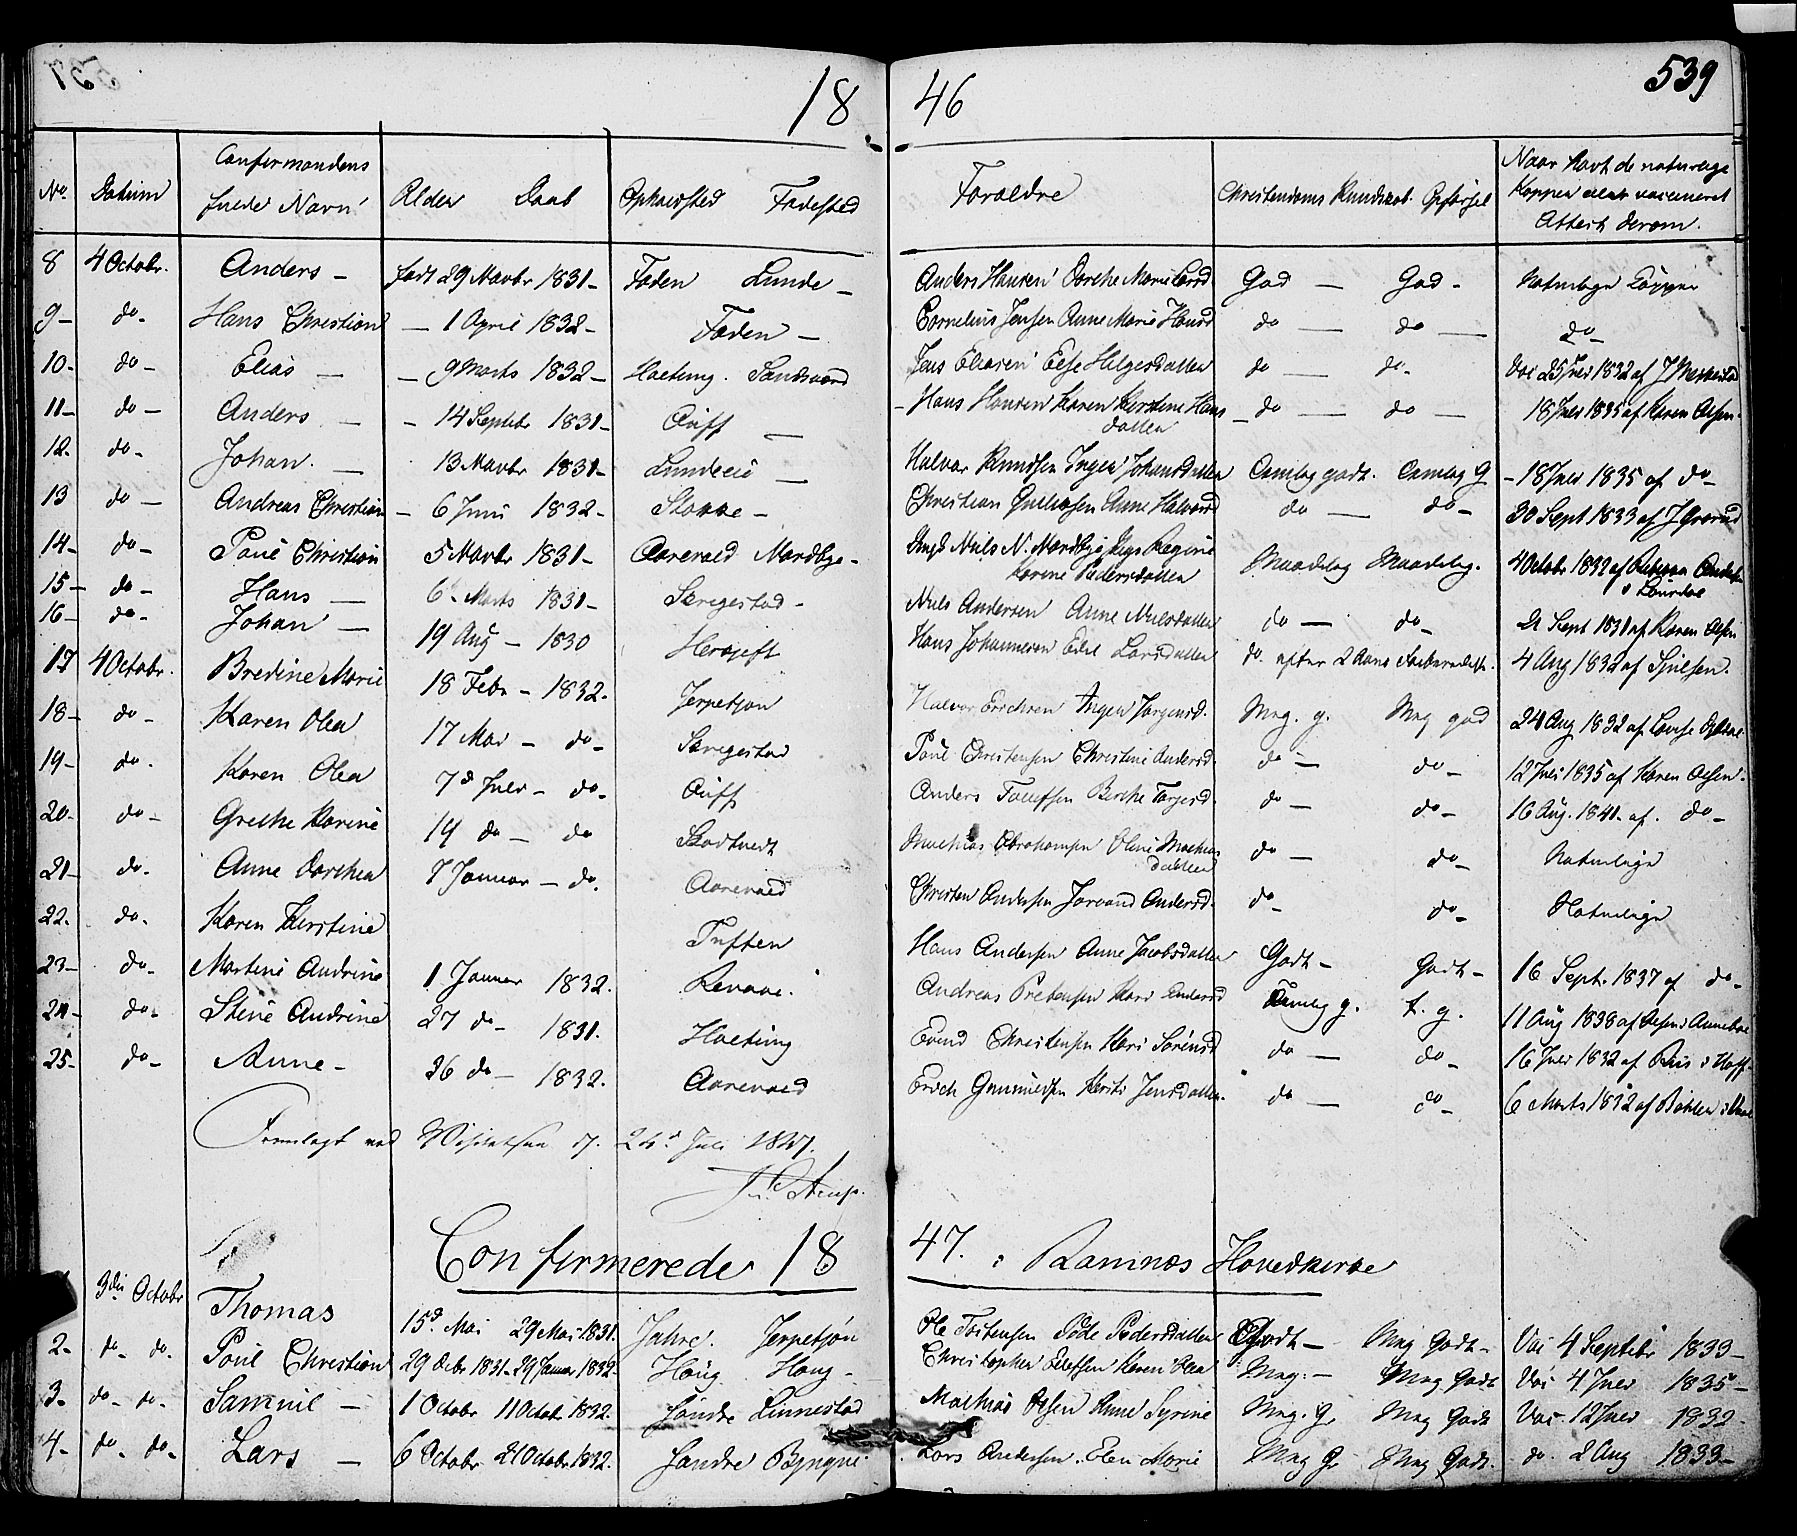 18 46 539
No. Datum Confirmandens fulde Navn Alder Daab Opholdsted Fødested Forældre Christendoms Kundskab. Opførsel Naar havt de naturlige Kopper eller vaccineret Attest derom.
8 4 Octobr. Anders – født 29 Novbr 1831 – Foden Lunde – Anders Hansen Dorthe Marie God – God – Naturlige Kopper
9 – do – Hans Christian – 1 April 1832 – Foden – Cornelius Jensen Anne Marie Hansd do – do – do –
10 – do – Elias – – 9 Marts 1832 – Jens Eliasen Else Helgesdatter do – do – Vac 25 Juli 1832 af J
11 – do – Anders – – 14 Septbr 1831 – Auff – Hans Hansen Karen Kirstine Hans datter – do – do – 18 Juli 1835 af Karen Olsen
12 – do – Johan. – 13 Novbr 1831 – Lundeeie – Halvor Knudsen Inger Johansdatter Temlig godt. Temlig G – 18 Juli 1835 af do –
13 do – Andreas Christian – 6 Juni 1832 – Stokke – Christian Anne Halvorsd do – do – 30 Sept 1833 af J
14 – do – Poul Christian 5 Novbr 1831 – Aarevold Nordbye – Niels N. Nordbye Regine Karine Pedersdatter Maadelig Maadelig. 4 Octobr 1832 af
15 – do – Hans – 6 Marts 1831 – Skregestad – Niels Andersen Anne Nielsdatter do – do – 21 Sept 1831 af Karen Olsen
16 – do – Johan – 19 Aug – 1830 Hans Johannesen Larsdatter do. efter 2 Aars Forberedelse. 4 Aug 1832 af
17 4 Octobr. Bredine Marie 18 Febr – 1832. Jerpetjøn Halvor Erichsen Inger Jørgensd. Mag. g. Mag god 24 Aug 1832 af
18 – do – Karen Olea 17 Mai – do – Skregestad Poul Christensen Christine Andersd. do – do – 12 Juli 1835 af Karen Olsen –
19 – do – Karen Olea 7d Juli – do – Auff Anders Tollefsen Berthe Torgersd. do – do – 16 Aug. 1841. af. do –
20 – do – Grethe Karine 19 do – do Skodtvedt Mathias Abrahamsen Oline Mathias datter do – do – Naturlige
21 – do – Anne Dorthea 7 Januar – do. Aarevold Christen Andersen Andersd. do – do – Naturlige
22. do – Karen Kirstine Tuften Hans Andersen Anne Jacobsdatter Godt – Godt – 16 Sept. 1837 af do –
23 – do – Martine Andrine 1 Januar 1832. Revaae. Andreas Kari Andersd Temlig g. t. g. 11 Aug 1838 af
24 – do – Stine Andrine 27 do – 1831. Evend Christensen Kari Sørensd do – do – 16 Juli 1832 af Riis i Hoff
25 – do – Anne – 26 do – 1832. Aarevold Erich Gunnulfsen Kirsti Jensdatter. do – do – 6 Marts 1832 af
Fremlagt ved Visitatsen d. 24d Juli 1847.
Confirmerede 1847. i Ramnæs Hovedkirke
3die Octobr Thomas 15d. Mai 29 Mai 1831. Jahre. Jerpetjøn Ole Pedersdatter Godt – Mag Godt – Vac 4 Septbr 1833 –
2 – do – do – Poul Christian 29 Decbr 1831 – 29 Januar 1832 – Høug Houg – Christopher Karen Olea Mag: – Mag Godt Vac 4 Juli 1835 –
3 – do – do – Samuel – 1 Octobr 11 Octobr 1832. Søndre Linnestad Mathias Olsen Anne Syrine Mag. G. Mag Godt Vac. 12 Juli 1832 –
4 – do – do – Lars – 6 Octobr 21 Octobr 1832. Søndre Lars Andersen. Elen Marie Mag G. Mag Godt. do. 2 Aug 1833 –